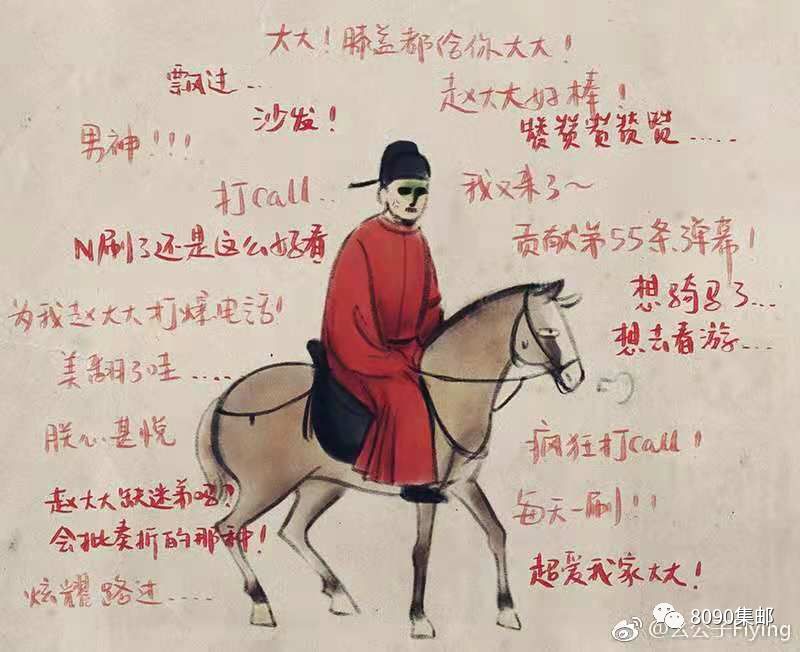 大大！膝盖都给你大大！
飘过...
赵大大好棒！
沙发！
赞赞赞赞赞.....
男神！！！
打call..
我又来了～
N刷了还是这么好看
贡献第55条弹幕！
想骑马了...
为我赵大大打爆电话！
想去看游...
美翻了哇.....
朕心甚悦
疯狂打call！
赵大大缺迷弟吗？
每天一刷！！
会批奏折的那种！
超爱我家大大！
炫耀路过.....
8090集邮
@云公子Flying